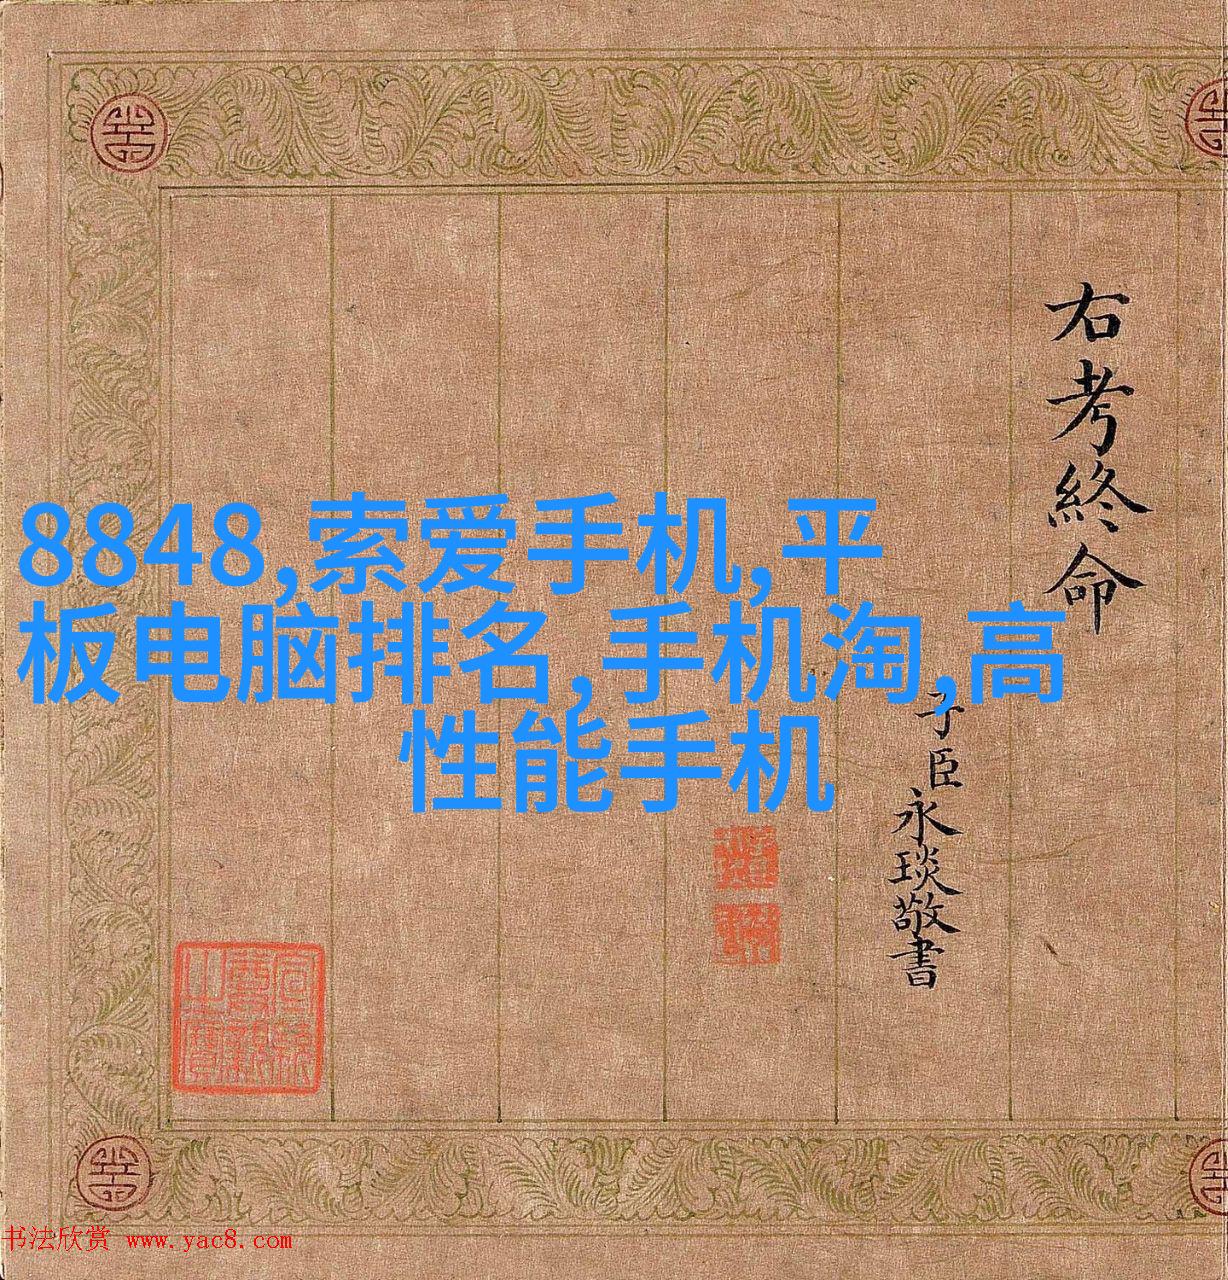 右考終命
子臣永琰敬書
8848,索爱手机,平
板电脑排名,手机淘,高
性能手机
书法欣赏 www.yac8.com